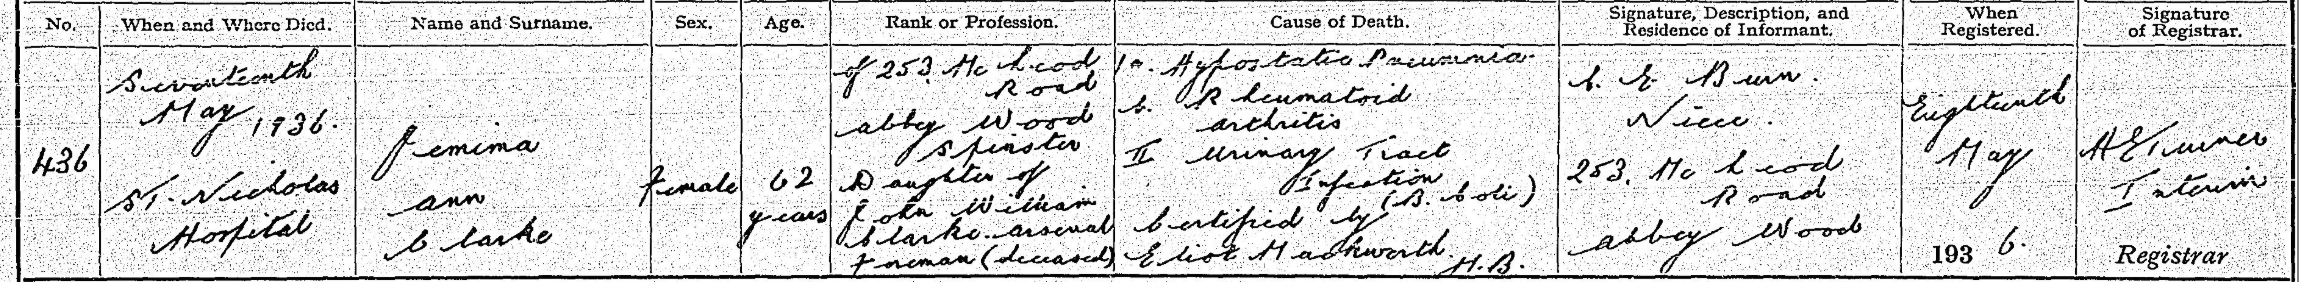 No.
When and Where Died.
Name and Surname.
Sex.
Age.
Rank or Profession.
Cause of Death.
Signature, Description, and
Residence of Informant.
When
Registered.
Signature
of Registrar.
436
Seventeenth
May 1936.
St. Nicholas
Hospital
Jemima
Ann
Clarke
Female
62
years
of 253. Mc Leod
Road
Abbey Wood
Spinster
Daughter of
John William
Clarke. Arsenal
Foreman (deceased)
1a. Hypostatic Pneumonia
b. Rheumatoid
arthritis
II Urinary Tract
Infection
(B. Coli)
Certified by
Eliot Mackworth
M.B.
C. E. Burn.
Niece.
253. Mc Leod
Road
Abbey Wood
Eighteenth
May
193 6.
H E Turner
Interim
Registrar